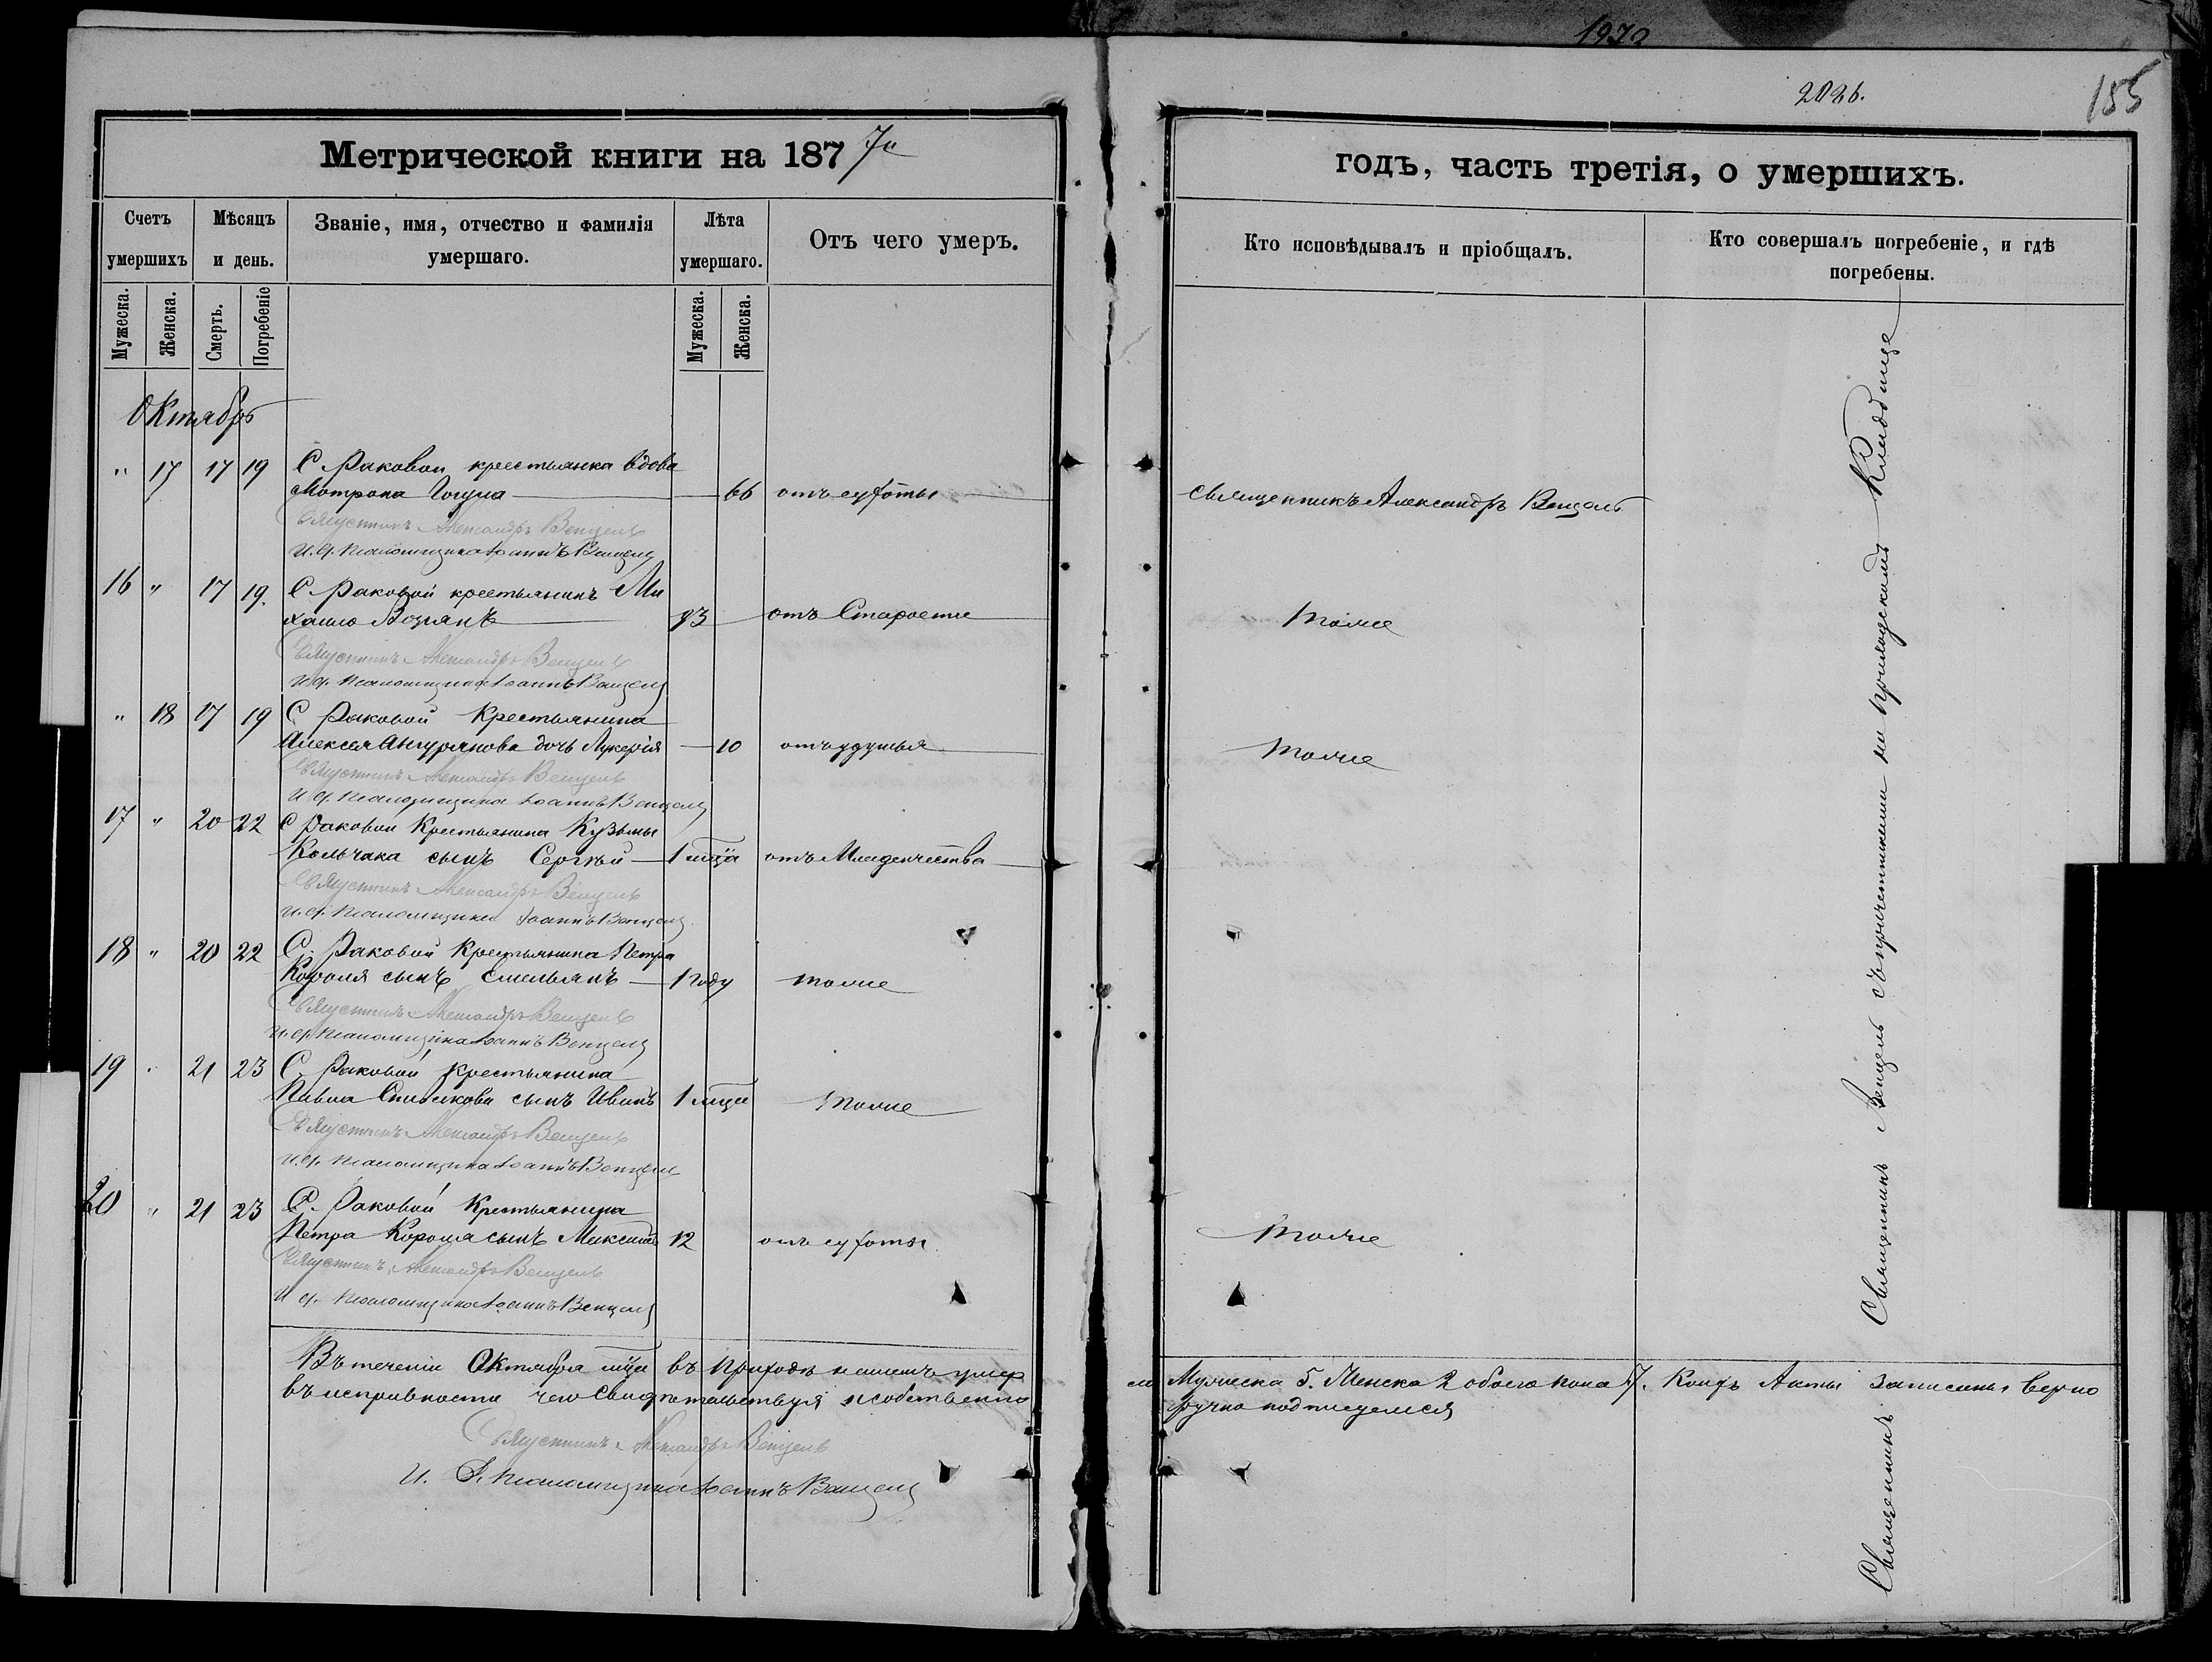 1970
202 об.
155
Метрической книги на 187 7й
годъ, часть третія, о умершихъ.
Счетъ умершихъ
Мѣсяцъ и день.
Званіе, имя, отчество и фамилія
умершаго.
Лѣта умершаго.
Отъ чего умеръ.
Кто исповѣдывалъ и пріобщалъ.
Кто совершалъ погребеніе, и гдѣ
погребены.
Мужеска. Женска. Смерть. Погребеніе Мужеска. Женска.
Октябрь
" 17 17 19 С. Раковой крестьянка вдова
Мотрона 66 отъ сухоты Священникъ Александръ Венцель
Священникъ Александръ Венцель
И. д. псаломщика Іоаннъ Венцель
16 " 17 19. С. Раковой крестьянинъ Ми
хаилъ 93 отъ Старости тоже
Священникъ Александръ Венцель
И. д. псаломщика Іоаннъ Венцель
" 18 17 19 С. Раковой Крестьянина
Алексея дочь Лукерія 10 отъ удушья тоже
Священникъ Александръ Венцель
И. д. псаломщика Іоаннъ Венцель
17 " 20 22 С Раковой Крестьянина Кузьмы
Кольчака сынъ Сергѣй 1 мца отъ Младенчества
Священникъ Александръ Венцель
И. д. псаломщика Іоаннъ Венцель
18 " 20 22 С. Раковой Крестьянина Петра
Короля сынъ Емельянъ 1 году тоже
Священникъ Александръ Венцель
И. д. псаломщика Іоаннъ Венцель
19 " 21 23 С. Раковой крестьянина
Павла сынъ Иванъ 1 мца тоже
Священникъ Александръ Венцель
И. д. псаломщика Іоаннъ Венцель
20 " 21 23 С. Раковой Крестьянина
Петра Короля сынъ Максимъ 12 отъ сухоты тоже
Священникъ Александръ Венцель
И. д. псаломщика Іоаннъ Венцель
Въ теченіи Октября мца въ приходѣ нашемъ умер
ло Мужеска 5. Женска 2 обоего пола 7. Акты записаны верно
въ исправности чего Свидѣтельствуя и собственно
ручно подписуемся
Священникъ Александръ Венцель
И. д. псаломщика Іоаннъ Венцель
Священникъ Священникъ Венцель съ причетниками на приходскомъ Кладбище